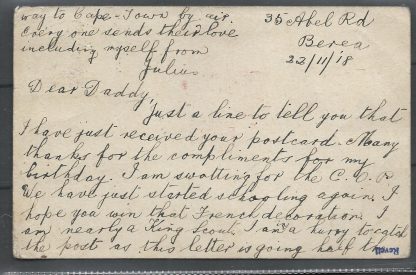 35 Abel Rd
Berea
22/11/18
Dear Daddy,
Just a line to tell you that
I have just received your postcard. Many
thanks for the compliments for my
birthday. I am swotting for the C.
We have just started schooling again. I
hope you win that French decoration. I
am nearly a King Scout. I am a hurry to catch
the post as this letter is going half the
way to Cape-Town by air.
Every one sends their love
including myself from
Julius
Revell